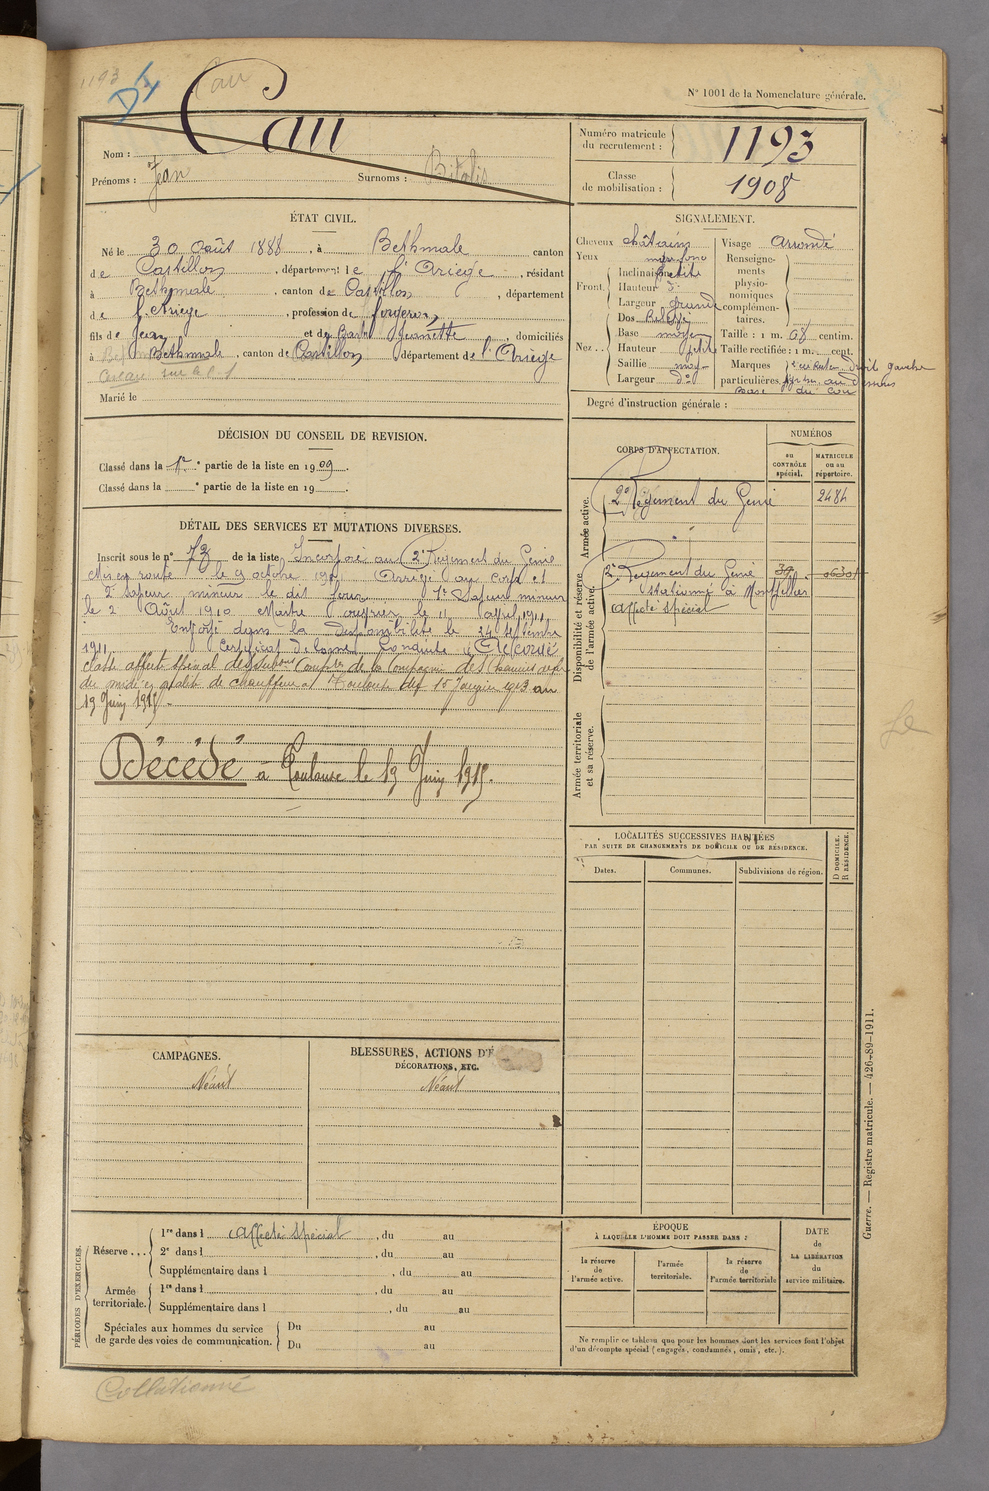 1193
Cau
N° 1001 de la Nomenclature générale.
Nom : Cau
Prénoms : Jean Surnoms :
Numéro matricule du recrutement : 1193
Classe de mobilisation : 1908
ÉTAT CIVIL.
Né le 30 Août 1888, à Bethmale canton
de Castillon, département de l'Ariège, résidant
à Bethmale, canton de Castillon, département
de l'Ariège, profession de forgeron
fils de Jean et de Jeannette, domiciliés
à Bethmale, canton de Castillon département de l'Ariège
Marié le
SIGNALEMENT.
Cheveux châtains
Yeux
Front. Inclinaison petite
Hauteur
Largeur grande
Nez... Dos
Base moyen
Hauteur petite
Saillie moy
Largeur do
Visage arrondi
Renseignements physionomiques complémentaires.
Taille : 1 m. 68 centim.
Taille rectifiée : 1 m. cent.
Marques particulières.
Degré d'instruction générale :
DÉCISION DU CONSEIL DE REVISION.
Classé dans la 1re partie de la liste en 1909.
Classé dans la e partie de la liste en 19
DÉTAIL DES SERVICES ET MUTATIONS DIVERSES.
Inscrit sous le n° 73 de la liste Incorporé au 2e Régiment du Génie
Mis en route le 9 octobre Arrivé au corps et
2e sapeur mineur le dit jour 1er Sapeur mineur
le 2 Août 1910. Maître ouvrier le 11 avril 1911.
Envoyé dans la disponibilité le 24 septembre
1911. Certificat de bonne conduite Accordé
Classé affecté spécial des Subdons Compl res de la Compagnie des Chemins de fer
du midi en qualité de chauffeur à Toulouse du 15 Janvier 1913 au
19 Juin 1915.
Décédé à Toulouse le 19 Juin 1915.
CORPS D'AFFECTATION.
NUMÉROS
au CONTRÔLE spécial.
MATRICULE ou au répertoire.
Armée active.
2e Régiment du Génie 2484
Disponibilité et réserve de l'armée active.
2e Régiment du Génie
stationné à Montpellier
Affecté spécial
Armée territoriale et sa réserve.
LOCALITÉS SUCCESSIVES HABITÉES
PAR SUITE DE CHANGEMENTS DE DOMICILE OU DE RÉSIDENCE.
D DOMICILE.
R RÉSIDENCE.
Dates. Communes. Subdivisions de région.
CAMPAGNES.
Néant
BLESSURES, ACTIONS D'É
DÉCORATIONS, ETC.
Néant
PÉRIODES D'EXERCICES.
Réserve ... 1re dans l Affecté spécial, du au
2e dans l , du au
Supplémentaire dans l , du au
Armée territoriale. 1re dans l , du au
Supplémentaire dans l , du au
Spéciales aux hommes du service de garde des voies de communication. Du au
Du au
ÉPOQUE
À LAQUELLE L'HOMME DOIT PASSER DANS :
la réserve de l'armée active.
l'armée territoriale.
la réserve de l'armée territoriale
DATE de LA LIBÉRATION du service militaire.
Ne remplir ce tableau que pour les hommes dont les services font l'objet
d'un décompte spécial (engagés, condamnés, omis, etc.).
Guerre. — Registre matricule. — 426-89-1911.
Collationné